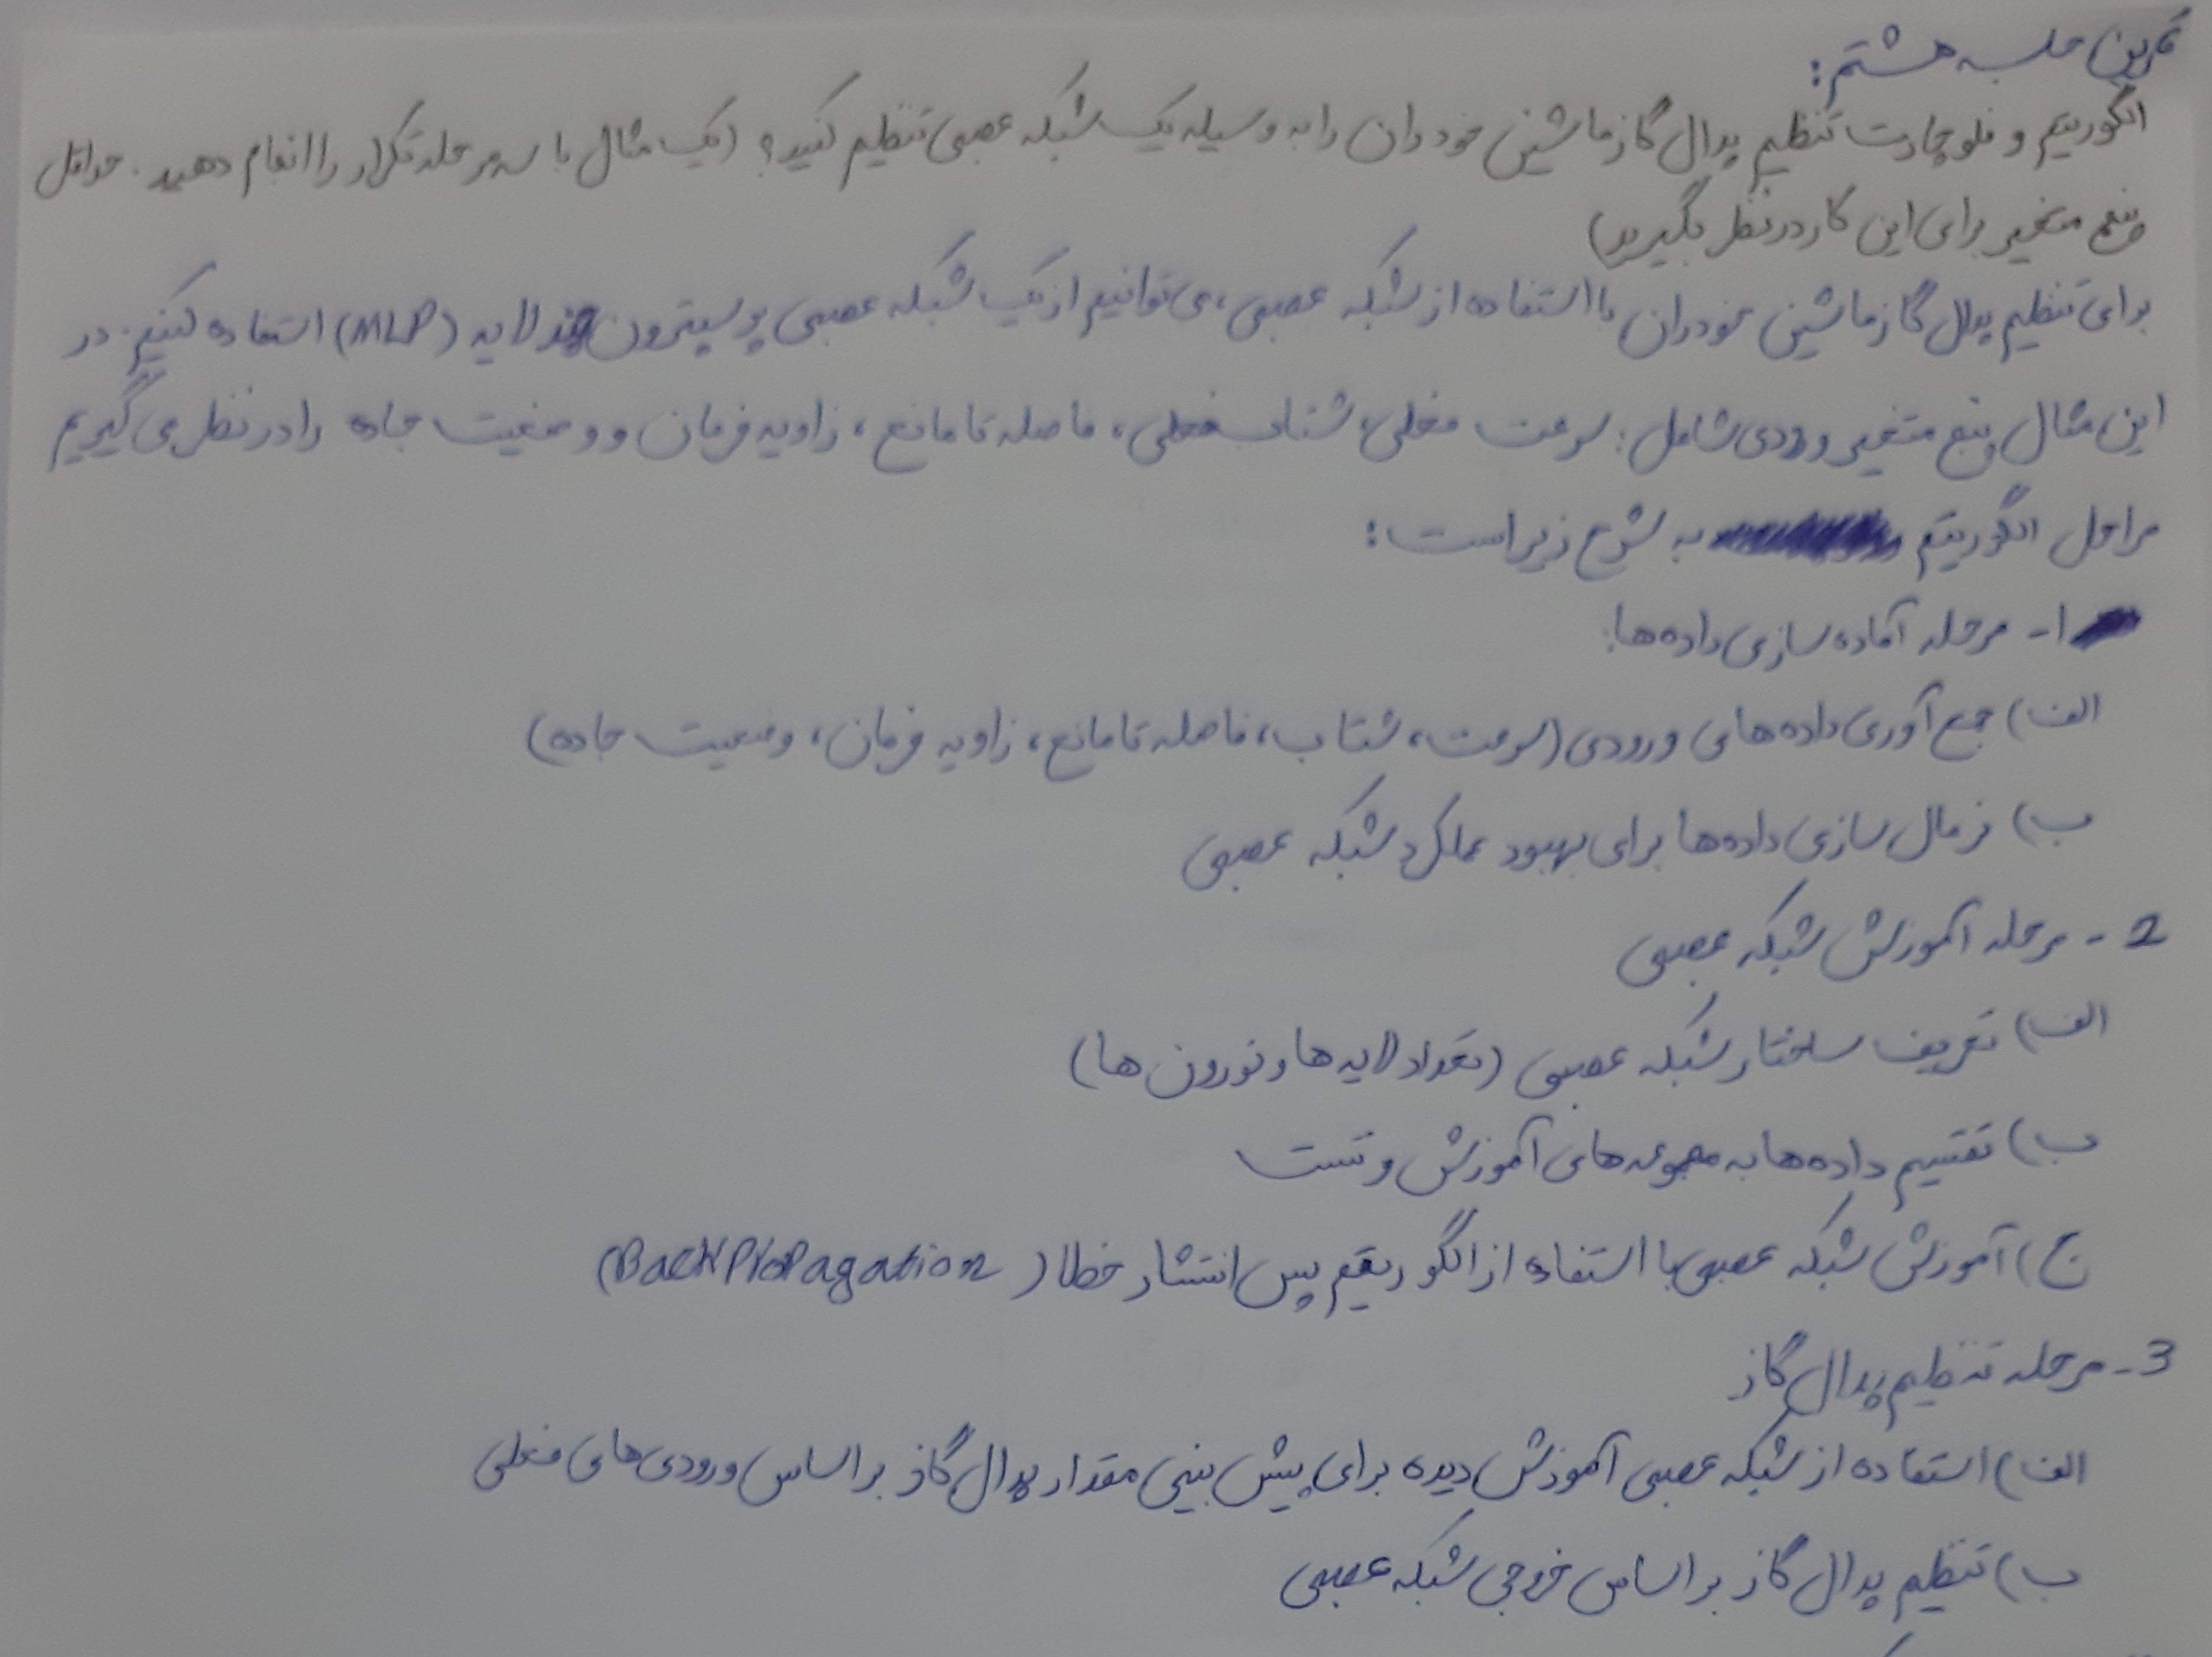 تمرین جلسه هشتم:
الگوریتم و فلوچارت تنظیم پدال گاز ماشین خودران را به وسیله یک شبکه عصبی تنظیم کنید؟ (یک مثال با سه مرحله تکرار را انجام دهید. حداقل
پنج متغیر برای این کار در نظر بگیرید)
برای تنظیم پدال گاز ماشین خودران با استفاده از شبکه عصبی، می توانیم از یک شبکه عصبی پرسپترون چند لایه (MLP) استفاده کنیم. در
این مثال پنج متغیر ورودی شامل: سرعت فعلی، شتاب فعلی، فاصله تا مانع، زاویه فرمان و وضعیت جاده را در نظر می گیریم
مراحل الگوریتم به شرح زیر است:
1- مرحله آماده سازی داده ها:
الف) جمع آوری داده های ورودی (سرعت، شتاب، فاصله تا مانع، زاویه فرمان، وضعیت جاده)
ب) نرمال سازی داده ها برای بهبود عملکرد شبکه عصبی
2- مرحله آموزش شبکه عصبی
الف) تعریف ساختار شبکه عصبی (تعداد لایه ها و نورون ها)
ب) تقسیم داده ها به مجموعه های آموزش و تست
ج) آموزش شبکه عصبی با استفاده از الگوریتم پس انتشار خطا (BackPropagation)
3- مرحله تنظیم پدال گاز
الف) استفاده از شبکه عصبی آموزش دیده برای پیش بینی مقدار پدال گاز بر اساس ورودی های فعلی
ب) تنظیم پدال گاز بر اساس خروجی شبکه عصبی